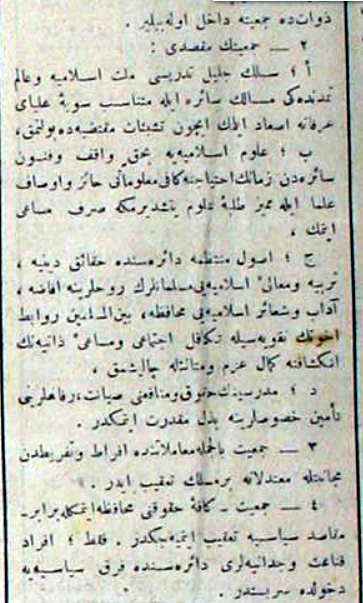 ذواتده جمعيته داخل اوله‌بيلير .
٢ — جمعيتك مقصدى :
أ ؛ سلك جليل تدريسى ملت اسلاميه وعالم
تمدنده‌كى مسالك سائره ايله متناسب سويهٔ علياى
عرفانه اصعاد ايتمك ايچون تشبثات مقتضيه‌ده بولنمق ،
ب ؛ علوم اسلاميه‌يه بحق واقف وفنون
سائره‌دن زمانك احتياجنه كافى معلوماتى حائز واوصاف
علما ايله مميز طلبهٔ علوم يتشديرمكه صرف مساعى
ايتمك ،
ج ؛ اصول منتظمه دائره‌سنده حقائق دينيه ،
تربيه ومعالىٔ اسلاميه‌يى مسلمانلرك روحلرينه افاضه ،
آداب وشعائر اسلاميه‌يى محافظه ، بين‌المسلمين روابط
اخوتك تقويه‌سيله تكافل اجتماعى ومساعىٔ ذاتيه‌نك
انكشافنه كمال عزم ومتانتله چاليشمق ،
د ؛ مدرسينك حقوق ومنافعنى صيانت ، رفاهلرينى
تأمين خصوصلرينه بذل مقدرت ايتمكدر .
٣ — جمعيت بالجمله معاملاتنده افراط وتفريطدن
مجانبتله معتدلانه برمسلك تعقيب ايدر .
٤ — جمعيت ـ كافهٔ حقوقنى محافظه ايتمكله برابر ـ
مقاصد سياسيه تعقيب ايتميه‌جكدر . فقط ؛ افراد
قناعت وجدانيه‌لرى دائره‌سنده فرق سياسيه‌يه
دخولده سربستدر .